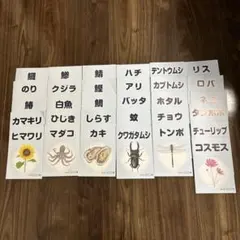 のり
椿
カマキリ
ヒマワリ
鯵
クジラ
白魚
ひじき
マダコ
鯖
鰹
鯛
しらす
カキ
ハチ
アリ
バッタ
蚊
クワガタムシ
テントウムシ
カブトムシ
ホタル
チョウ
トンボ
リス
ロバ
タンポポ
チューリップ
コスモス